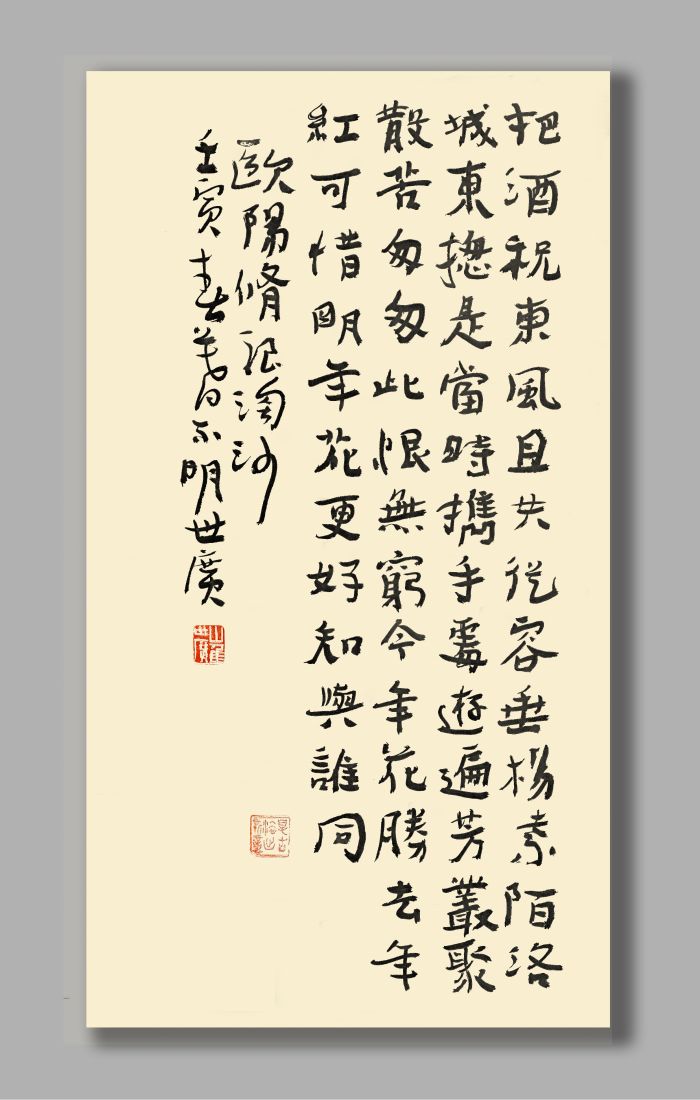 把酒祝東風且共從容垂楊紫陌洛
城東摠是當時攜手處遊遍芳叢聚
散苦匆匆此恨無窮今年花勝去年
紅可惜明年花更好知與誰同
歐陽脩浪淘沙
壬寅春明世廣